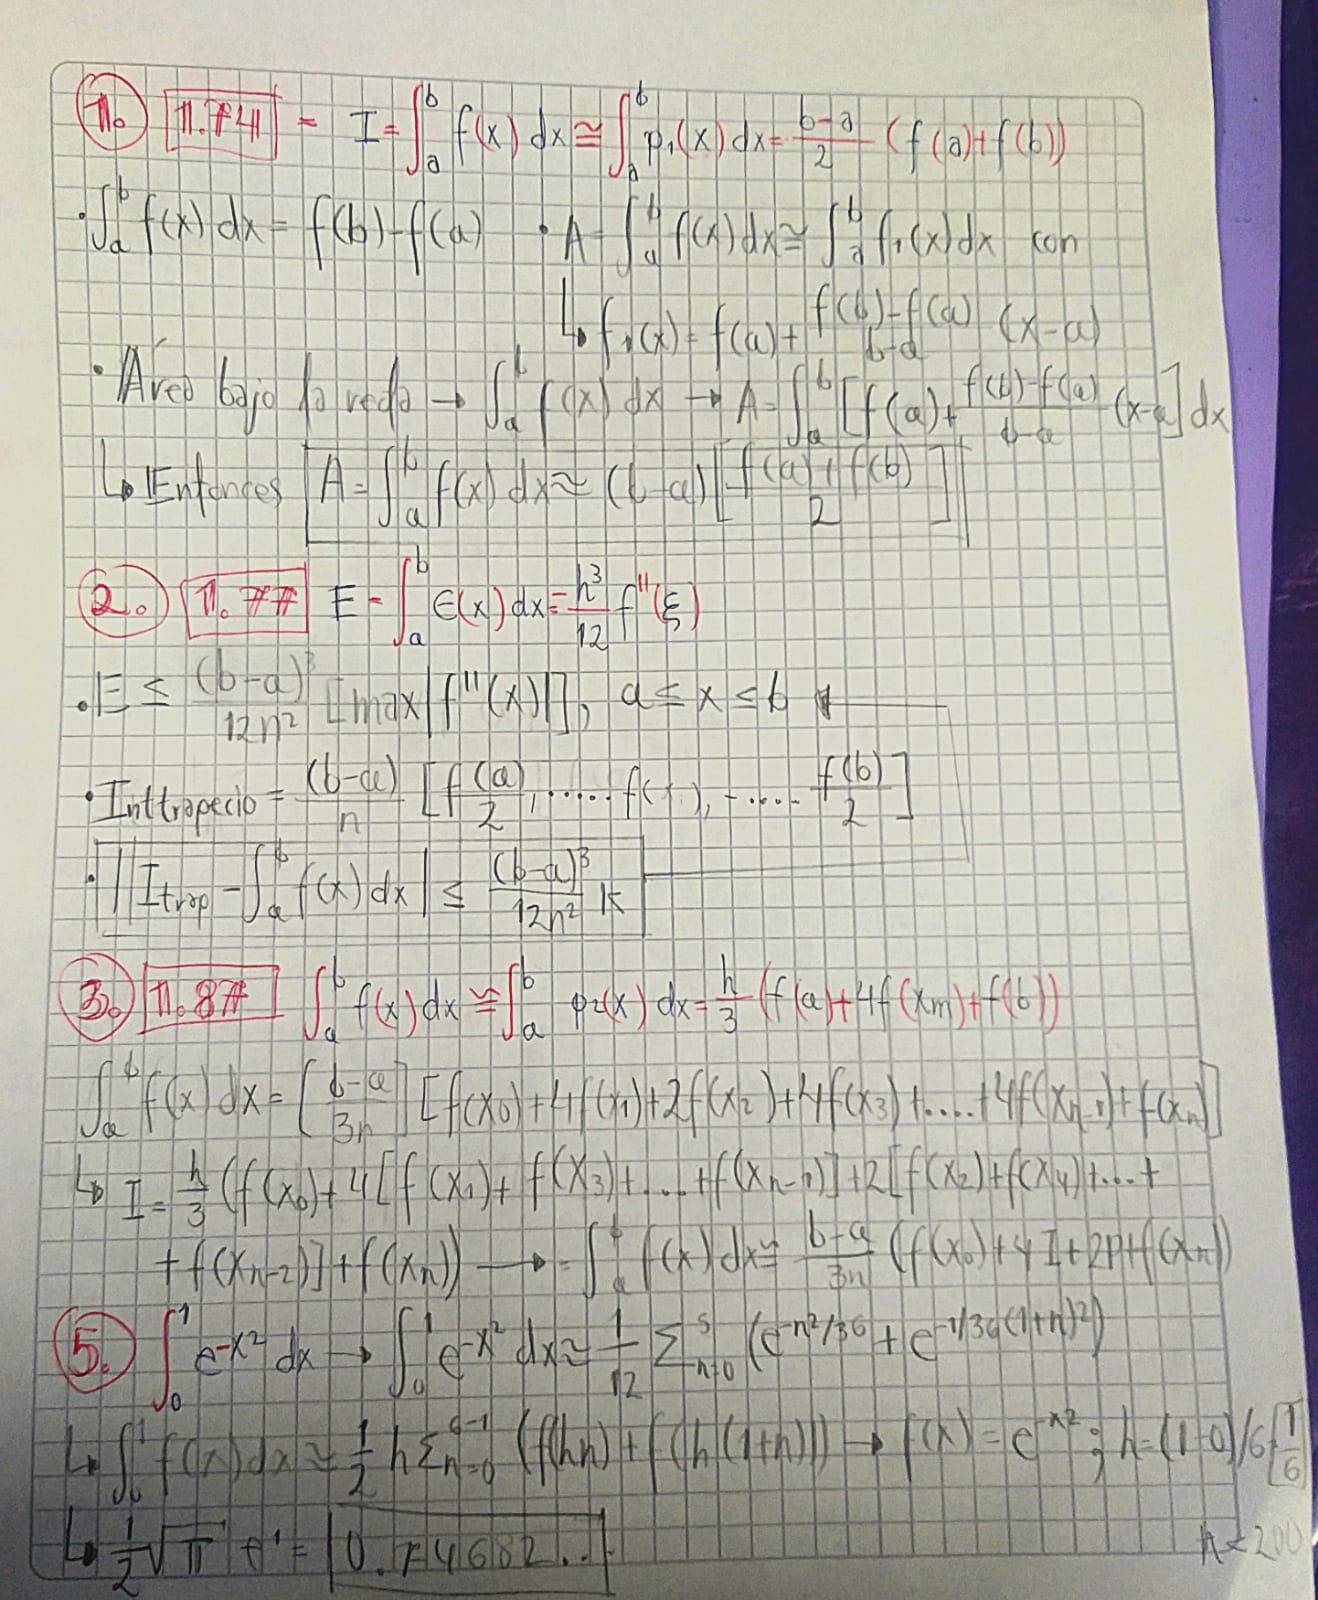 1. 1.74 = I = ∫_a^b f(x) dx ≅ ∫_a^b p₁(x) dx = b-a/2 (f(a)+f(b))
· ∫_a^b f(x) dx = f(b)-f(a) · A = ∫_a^b f(x) dx ≅ ∫_a^b f₁(x) dx con
↳ f₁(x) = f(a) + f(b)-f(a)/b-a (x-a)
· Área bajo la recta → ∫_a^b f(x) dx → A = ∫_a^b [f(a) + f(b)-f(a)/b-a (x-a)] dx
↳ Entonces A = ∫_a^b f(x) dx ≈ (b-a) [f(a)+f(b)/2]
2. 1.77 E = ∫_a^b ∈(x) dx = h³/12 f''(ξ)
· E ≤ (b-a)³/12n² [max|f''(x)|], a ≤ x ≤ b
· Inttrapecio = (b-a)/n [f(a)/2, ..... f( ), - ..... f(b)/2]
· |Itrap - ∫_a^b f(x) dx| ≤ (b-a)³/12n² K
3. 1.87 ∫_a^b f(x) dx ≅ ∫_a^b p₂(x) dx = h/3 (f(a)+4f(xm)+f(b))
∫_a^b f(x) dx = [b-a/3n] [f(x₀)+4f(x₁)+2f(x₂)+4f(x₃)+....+4f(xn-1)+f(xn)]
↳ I = h/3 (f(x₀)+4[f(x₁)+f(x₃)+...+f(xn-1)]+2[f(x₂)+f(x₄)+...+
+f(xn-2)]+f(xn)) → = ∫_a^b f(x) dx ≈ b-a/3n (f(x₀)+4I+2P+f(xn))
5. ∫_0^1 e^-x² dx → ∫_0^1 e^-x² dx ≈ 1/12 Σ_n=0^5 (e^-n²/36 + e^-1/36(1+n)²)
↳ ∫_0^1 f(x) dx ≈ 1/2 h Σ_n=0^6-1 (f(hn)+f(h(1+n))) → f(x) = e^-x² ; h = (1-0)/6 = 1/6
↳ 1/2 √π = 0.74682...